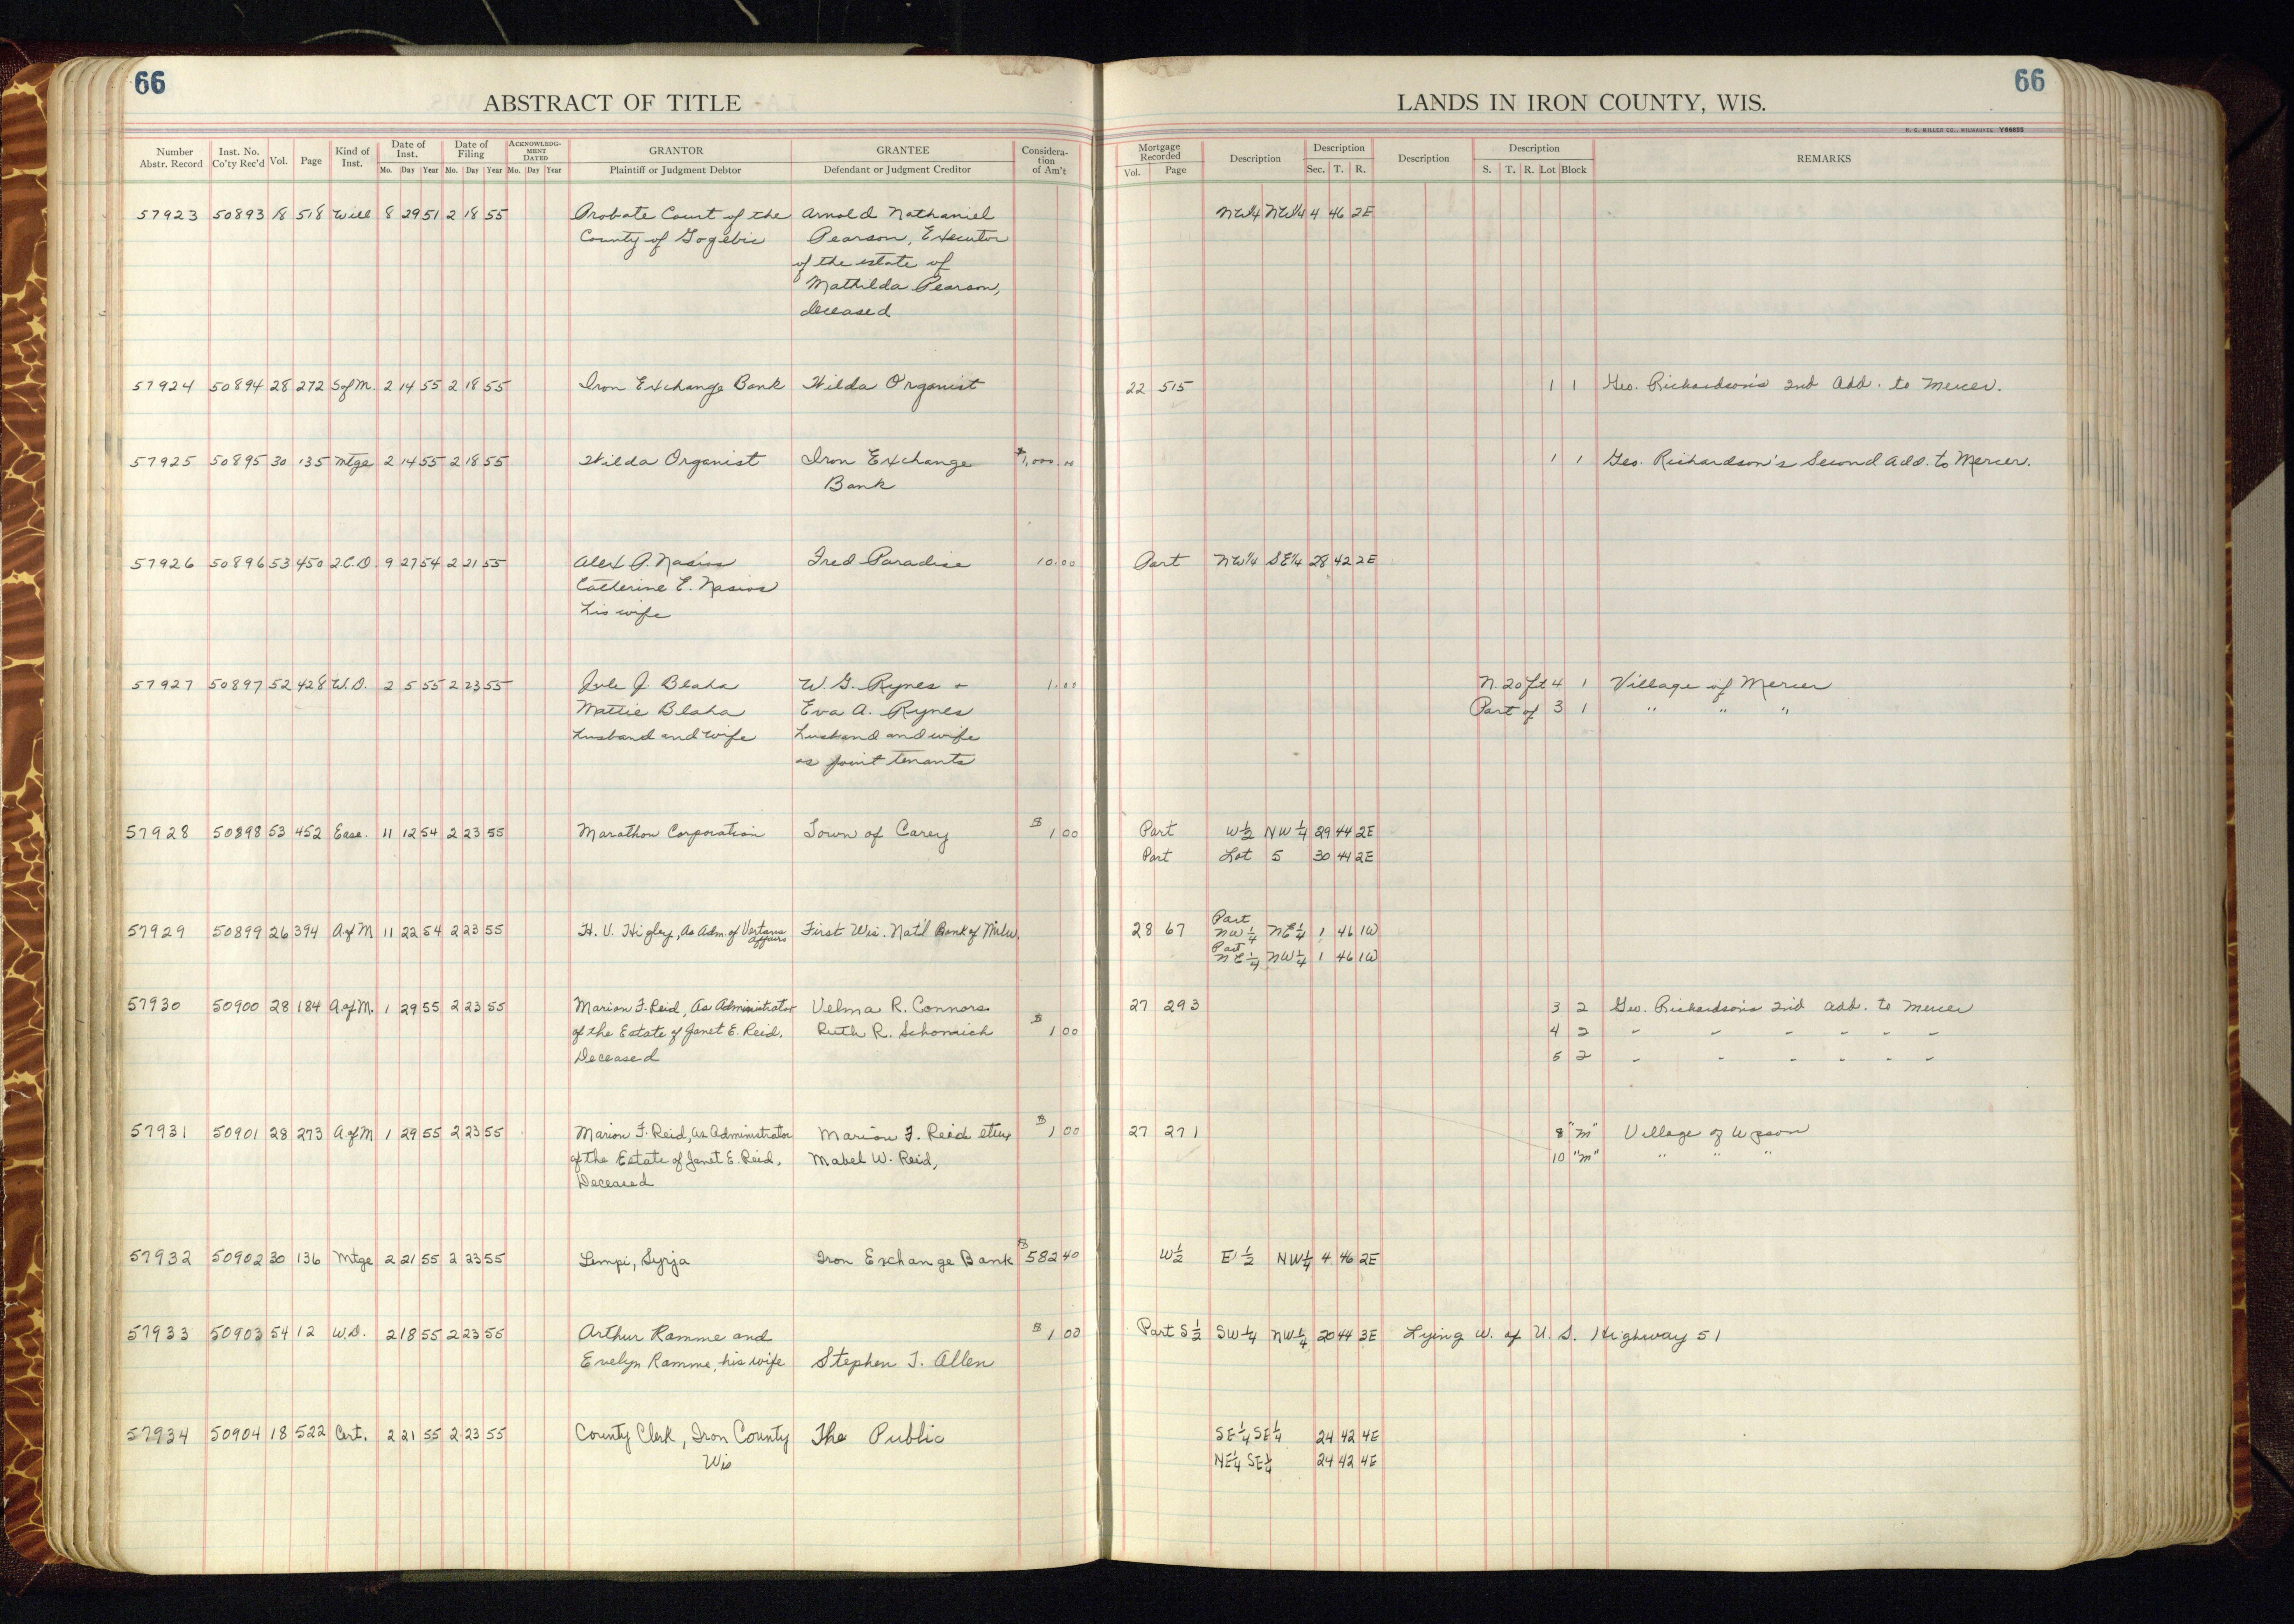 66
66
ABSTRACT OF TITLE
LANDS IN IRON COUNTY, WIS.
H. C. MILLER CO., MILWAUKEE Y66855
Number Abstr. Record Inst. No. Co'ty Rec'd Vol. Page Kind of Inst. Date of Inst. Mo. Day Year Date of Filing Mo. Day Year ACKNOWLEDGMENT DATED Mo. Day Year GRANTOR Plaintiff or Judgment Debtor GRANTEE Defendant or Judgment Creditor Consideration of Am't Mortgage Recorded Vol. Page Description Description Sec. T. R. Description Description S. T. R. Lot Block REMARKS
57923 50893 18 518 Will 8 29 51 2 18 55 Probate Court of the Arnold Nathaniel NW¼ NW¼ 4 46 2E
County of Gogebic Pearson, Executor
of the estate of
Mathilda Pearson,
deceased
57924 50894 28 272 S of M. 2 14 55 2 18 55 Iron Exchange Bank Hilda Organist 22 515 1 1 Geo. Richardson's 2nd Add. to Mercer.
57925 50895 30 135 Mtge 2 14 55 2 18 55 Hilda Organist Iron Exchange $1,000.00 1 1 Geo. Richardson's Second Add. to Mercer.
Bank
57926 50896 53 450 2.C.D. 9 27 54 2 21 55 Alex A. Nasios Fred Paradise 10.00 Part NW¼ SE¼ 28 42 2E
Catherine E. Nasios
his wife
57927 50897 52 428 W.D. 2 5 55 2 23 55 J. Blaha W. G. Rynes + 1.00 N. 20 ft 4 1 Village of Mercer
Mattie Blaha Eva A. Rynes Part of 3 1 " " "
husband and wife husband and wife
as joint tenants
57928 50898 53 452 Ease. 11 12 54 2 23 55 Marathon Corporation Town of Carey $ 1 00 Part W½ NW¼ 29 44 2E
Part Lot 5 30 44 2E
57929 50899 26 394 A of M 11 22 54 2 23 55 H. V. Higley, As Adm. of Vertans Affairs First Wis. Nat'l Bank of Milw. 28 67 Part NW¼ NE¼ 1 46 1W
Part NE¼ NW¼ 1 46 1W
57930 50900 28 184 A of M. 1 29 55 2 23 55 Marion F. Reid, As Administrator Velma R. Connors 27 293 3 2 Geo. Richardson's 2nd Add. to Mercer
of the Estate of Janet E. Reid, Ruth R. Schomich $ 1 00 4 2 " " " " " "
Deceased 5 2 " " " " " "
57931 50901 28 273 A of M 1 29 55 2 23 55 Marion F. Reid, as Administrator Marion F. Reid etux $ 1 00 27 271 8 "M" Village of Upson
of the Estate of Janet E. Reid, Mabel W. Reid, 10 "M" " " "
Deceased
57932 50902 30 136 Mtge 2 21 55 2 23 55 Lempi, Syrja Iron Exchange Bank $ 582 40 W½ E½ NW¼ 4 46 2E
57933 50903 54 12 W.D. 2 18 55 2 23 55 Arthur Ramme and $ 1 00 Part S½ SW¼ NW¼ 20 44 3E Lying W. of U. S. Highway 51
Evelyn Ramme, his wife Stephen T. Allen
57934 50904 18 522 Cert. 2 21 55 2 23 55 County Clerk, Iron County The Public SE¼ SE¼ 24 42 4E
Wis NE¼ SE¼ 24 42 4E